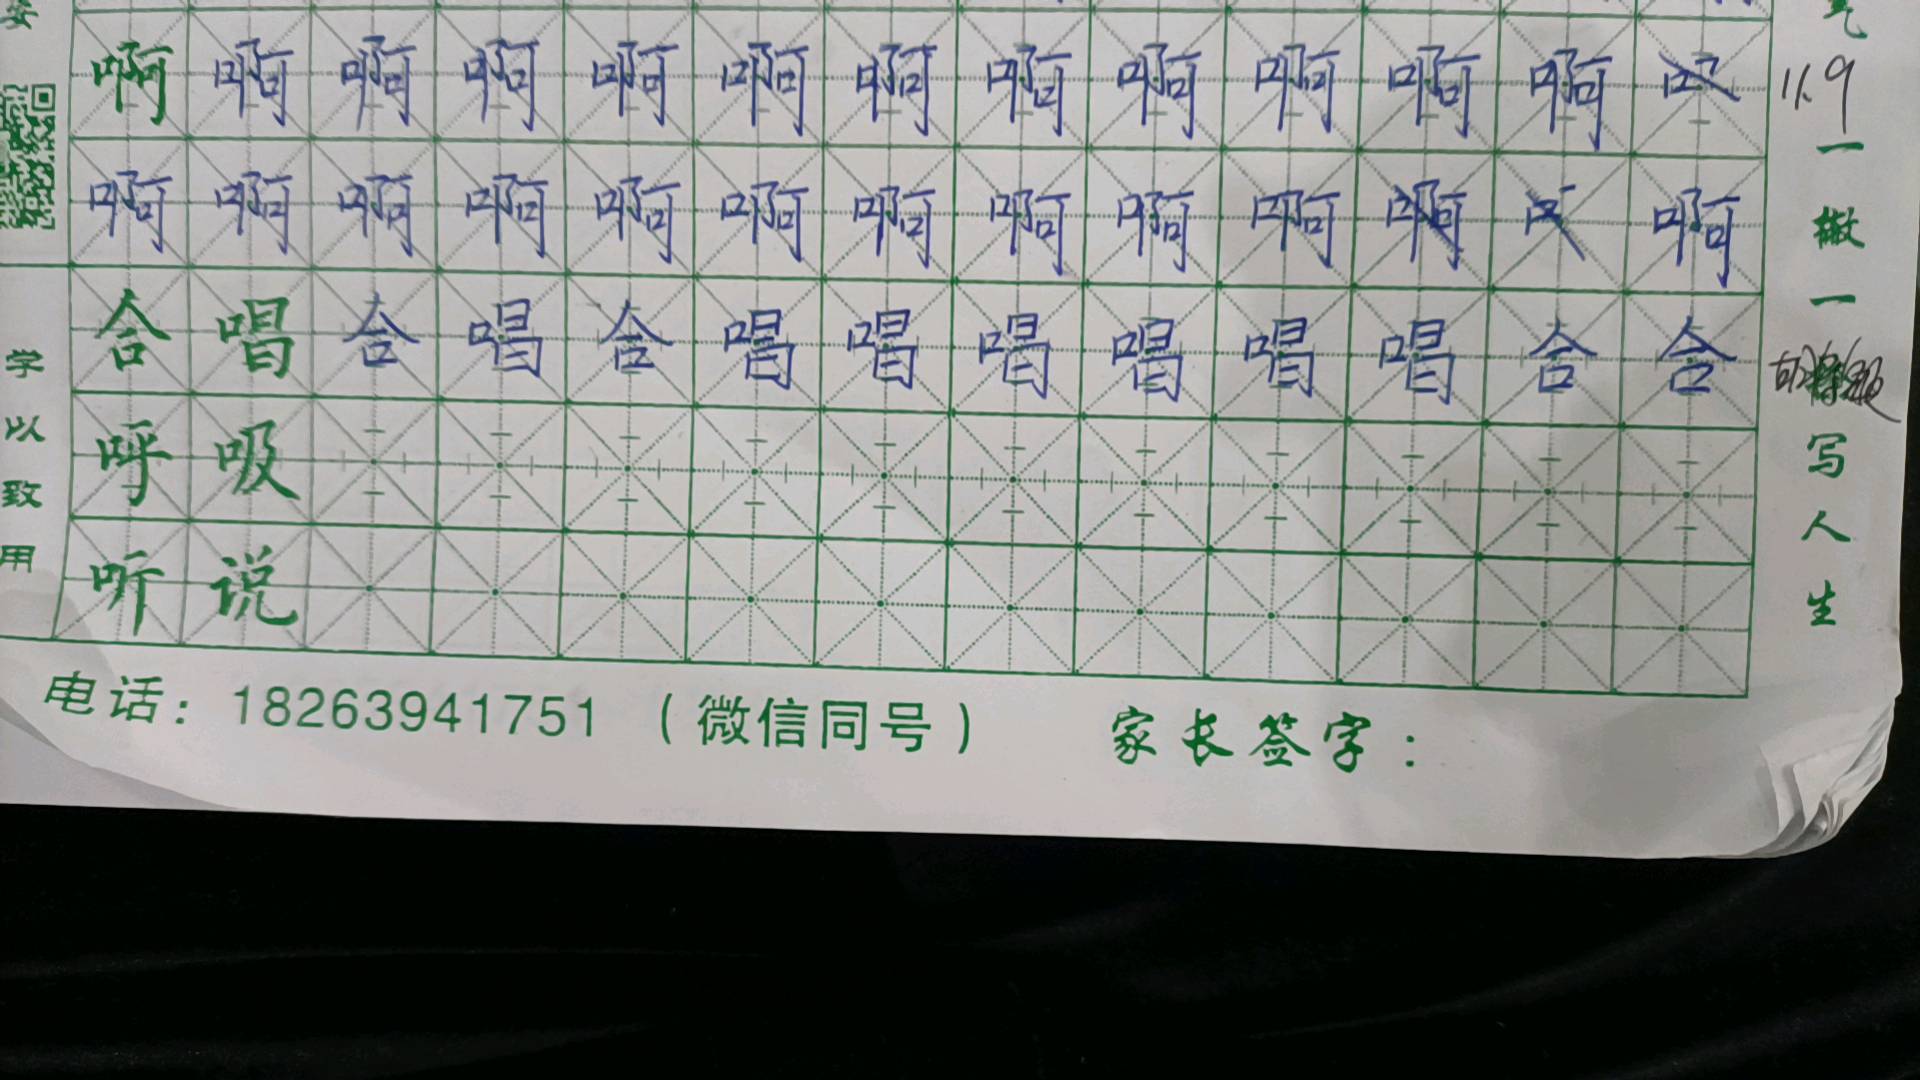 啊啊啊啊啊啊啊啊啊啊啊啊
啊啊啊啊啊啊啊啊啊啊啊啊
合唱合唱合唱唱唱唱唱唱合合
呼吸
听说
电话：18263941751（微信同号） 家长签字：
学以致用
11.9
一撇一
写人生